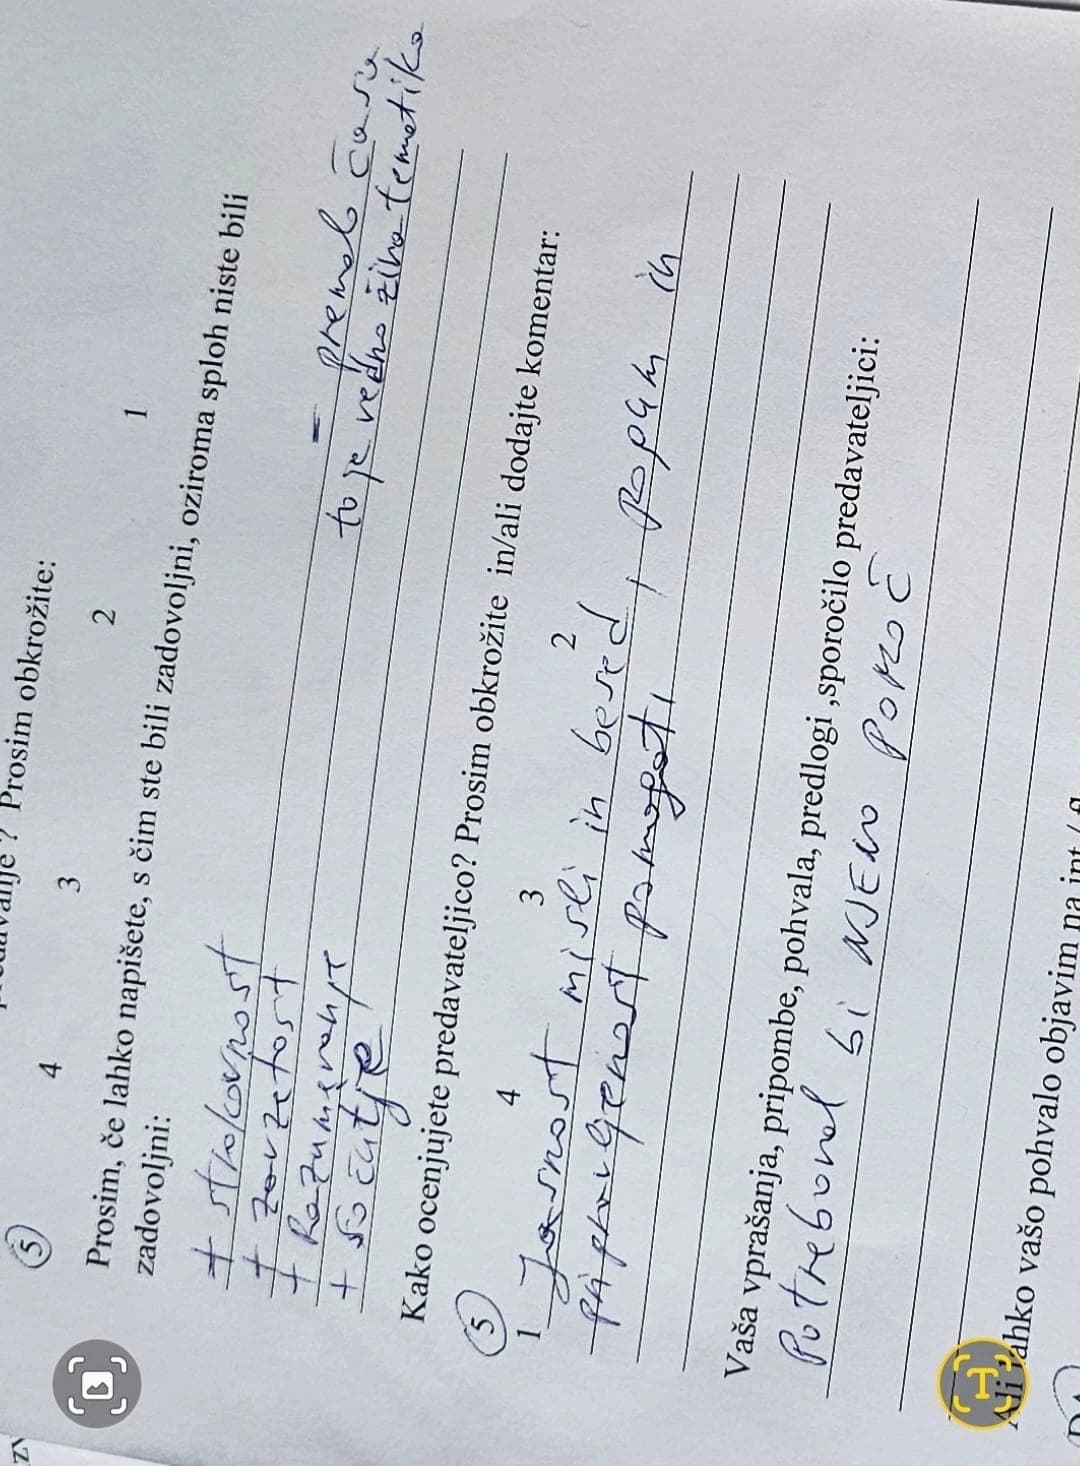 Prosim obkrožite:
5 4 3 2 1
Prosim, če lahko napišete, s čim ste bili zadovoljni, oziroma sploh niste bili
zadovoljni:
+ strokovnost
+ zavzetost - premalo časa
+ Razumevanje to je vedno živa tematika
+ sočutje
Kako ocenjujete predavateljico? Prosim obkrožite in/ali dodajte komentar:
5 4 3 2
1 Jasnost misli in besed, pogum in
pripravljenost pomagati
Vaša vprašanja, pripombe, pohvala, predlogi ,sporočilo predavateljici:
Potreboval bi NJENO POMOČ
Ali lahko vašo pohvalo objavim na